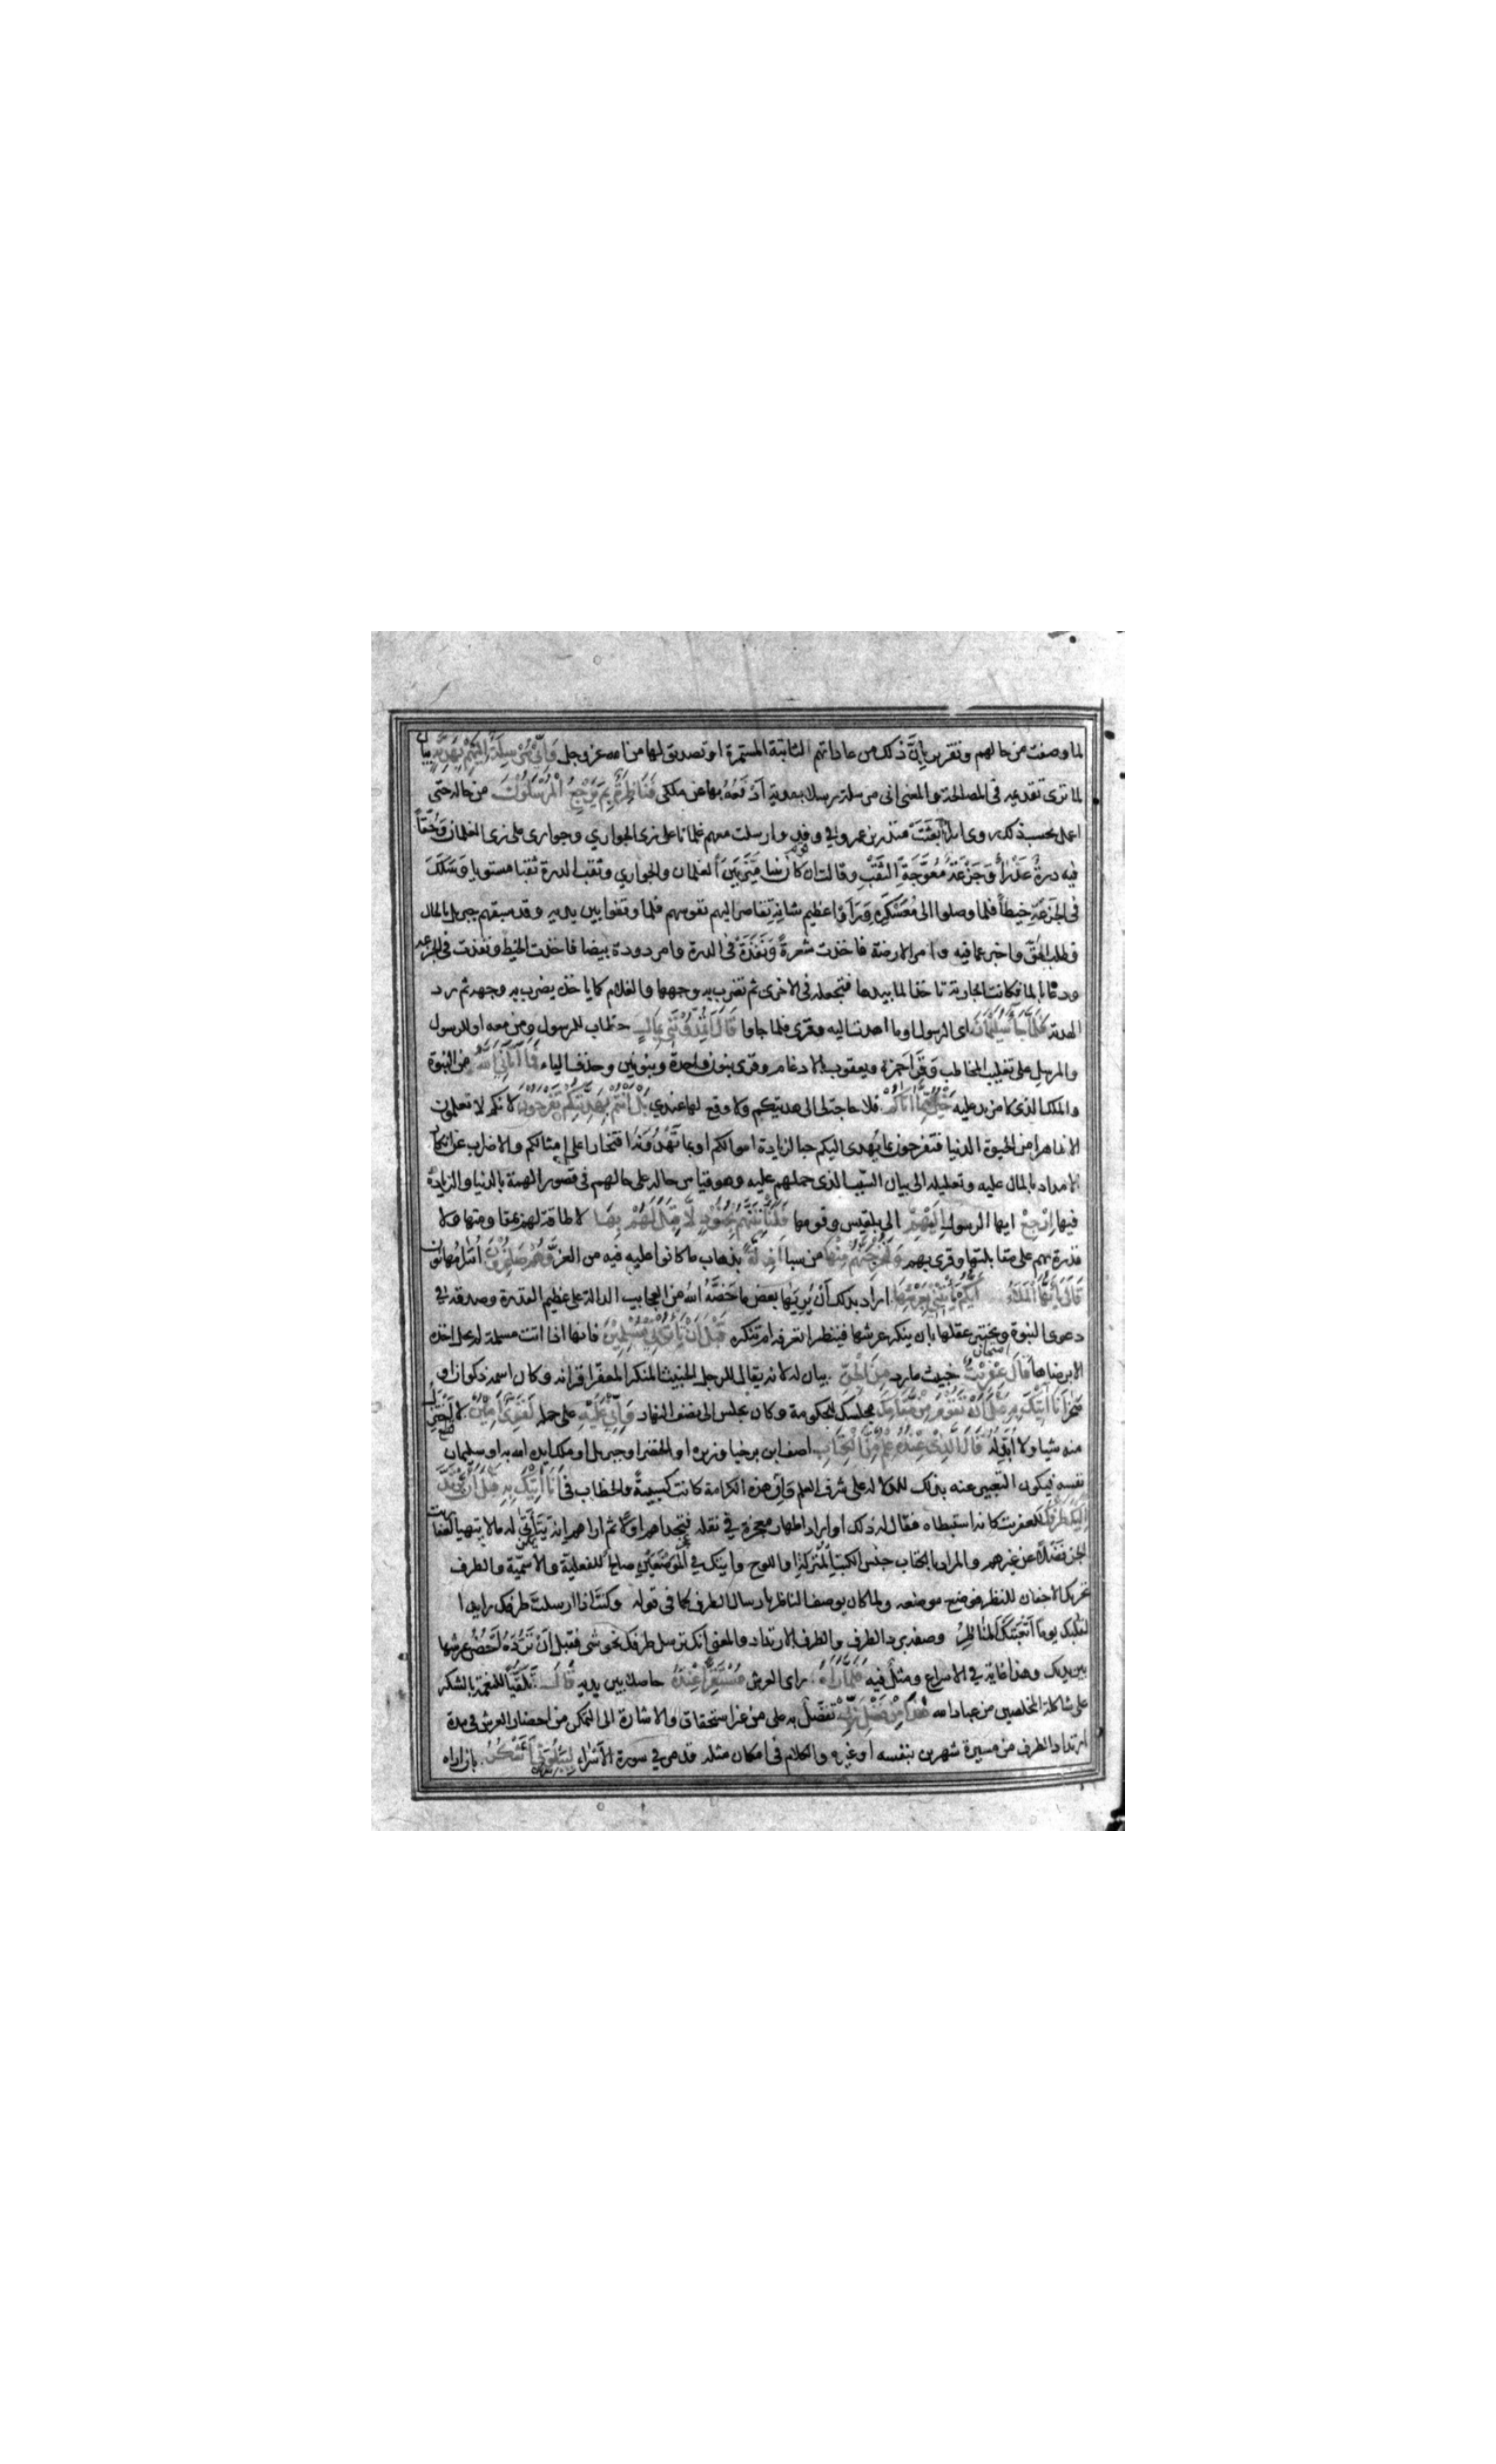 لما وصفت من حالهم وتقرير بان ذلك من عاداتهم الثابتة المستمرة او تصديق لها من الله عز وجل وَاِنِّي مُرْسِلَةٌ اِلَيْهِمْ بِهَدِيَّةٍ بيان
لما ترى تقديمه في المصالحة والمعنى اني مرسلة رسلا بهدية اَدْفَعُهُ بها عن ملكي فَنَاظِرَةٌ بِمَ يَرْجِعُ الْمُرْسَلُونَ من حاله حتى
اعمل بحسب ذلك روى انها بَعَثَتْ منذر بن عمرو في وفد وارسلت معهم غلمانا على زي الجواري وجواري على زي الغلمان وَحُقًّا
فيه درةٌ عَذْرَاءُ وَجَزْعَةٌ مُعْوَجَّةِ الثَّقْبِ وقالت ان كان نبيا مَيَّزَ بَيْنَ الغلمان والجواري وثقب الدرة ثقبا مستويا وَسَلَكَ
في الجَزْعَةِ خيطاً فلما وصلوا الى مُعَسْكَرِهِ وَرَاَوْا عظيم شانِهِ تقاصر اليهم نفوسهم فلما وقفوا بين يديه وقد سبقهم جبريل بالحال
فطلب الحُقَّ واخبر عما فيه وامر الارضة فاخذت شعرةً وَنَفَذَتْ في الدرة وامر دودة بيضا فاخذت الخيط ونفذت في الجزعة
ودعا بالما فكانت الجارية تاخذ الما بيدها فتجعله في الاخرى ثم تضرب به وجهها والغلام كما ياخذ يضرب به وجهه ثم رد
الهدية فَلَمَّا جَآءَ سُلَيْمَانَ اى الرسول او ما اهدت اليه وقرى فلما جاوا قَالَ اَتُمِدُّونَنِي بِمَالٍ خطاب للرسول ومن معه او للرسول
والمرسل على تغليب المخاطب وَقَرَاَ حمزة ويعقوب بالادغام وقرى بنون واحدة وبنونين وحذف الياء فَمَا آتَانِيَ اللّٰهُ من النبوة
والملك الذي لا مزيد عليه خَيْرٌ مِمَّا آتَاكُمْ فلا حاجة لي الى هديتكم ولا وقع لها عندي بَلْ اَنْتُمْ بِهَدِيَّتِكُمْ تَفْرَحُونَ لانكم لا تعلمون
الا ظاهرا من الحيوة الدنيا فتفرحون بما يُهدى اليكم حبا لزيادة اموالكم او بما تُهْدُونَهُ افتخارا على امثالكم والاضراب عن انكار
الامداد بالمال عليه وتعليله الى بيان السبب الذي حملهم عليه وهو قياس حاله على حالهم في قصور الهمة بالدنيا والزيادة
فيها اِرْجِعْ ايها الرسول اِلَيْهِمْ الى بلقيس وقومها فَلَنَأْتِيَنَّهُمْ بِجُنُودٍ لَا قِبَلَ لَهُمْ بِهَا لا طاقة لهم بمقاومتها ولا
قدرة بهم على مقابلتها وقرى بهم وَلَنُخْرِجَنَّهُمْ مِنْهَا من سبا اَذِلَّةً بذهاب ما كانوا عليه فيه من العز وَهُمْ صَاغِرُونَ اُسَرَاءُ مُهانون
قَالَ يَا اَيُّهَا الْمَلَاءُ اَيُّكُمْ يَأْتِينِي بِعَرْشِهَا اراد بذلك اَنْ يُرِيَهَا بعض ما خَصَّهُ اللهُ من العجايب الدالة على عظيم القدرة وصدقه في
دعوى النبوة ويختبر عقلها بان ينكر عرشها فينظر اتعرفه ام تنكره قَبْلَ اَنْ يَأْتُونِي مُسْلِمِينَ فانها اذا اتت مسلمة لم يحل اخذه
الا برضاها قَالَ عِفْرِيتٌ خبيث مارد مِنَ الْجِنِّ بيان له لانه يقال للرجل الخبيث المنكر المعفر اقرانه وكان اسمه ذكوان او
صخرا اَنَا آتِيكَ بِهِ قَبْلَ اَنْ تَقُومَ مِنْ مَقَامِكَ مجلسك للحكومة وكان يجلس الى نصف النهار وَاِنِّي عَلَيْهِ على حمله لَقَوِيٌّ اَمِينٌ لا اَخْتَزِلُ
منه شيا ولا اُبَدِّلُهُ قَالَ الَّذِي عِنْدَهُ عِلْمٌ مِنَ الْكِتَابِ اصف ابن برخيا وزيره او الخضر او جبريل او ملك ايده الله به او سليمان
نفسه فيكون التعبير عنه بذلك للدلالة على شرف العلم وَاَنَّ هذه الكرامة كانت بسببه والخطاب في اَنَا آتِيكَ بِهِ قَبْلَ اَنْ يَرْتَدَّ
اِلَيْكَ طَرْفُكَ للعفريت كانه استبطاه فقال له ذلك او اراد اظهار معجزة في نقله فتحداهم اولا ثم اراهم انه يَتَاَتَّى له ما لا يتهيا لعفاريت
الجن فَضْلًا عن غيرهم والمراد بالكتاب جنس الكتب الْمُنَزَّلَةِ او اللوح وآتيك في الْمَوْضِعَيْنِ صالح للفعلية والاسمية والطرف
تحريك الاجفان للنظر فوضع موضعه ولما كان يوصف الناظر بارسال الطرف كما في قوله وكنت اذا ارسلت طرفك رايدا
لقلبك يوما اَتْعَبَتْكَ الْمَنَاظِرُ وصف برد الطرف والطرف بالارتداد والمعنى انك ترسل طرفك نحو شى فقبل اَنْ تَرُدَّهُ اُحْضِرُ عرشها
بين يديك وهذا غاية في الاسراع ومثل فيه فَلَمَّا رَآهُ راى العرش مُسْتَقِرًّا عِنْدَهُ حاصلا بين يديه قَالَ تَلَقِّيًا للنعمة بالشكر
على شاكلة المخلصين من عباد الله هٰذَا مِنْ فَضْلِ رَبِّي تفضّل به على من غير استحقاق والاشارة الى التمكن من احضار العرش في مدة
ارتداد الطرف من مسيرة شهرين بنفسه او غيره والكلام في امكان مثله قد مر في سورة الاسراء لِيَبْلُوَنِي ءَاَشْكُرُ بان اراه